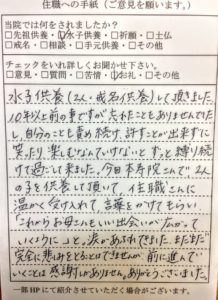 住職への手紙（ご意見を願います。）
当院では何をされましたか？
□先祖供養 ☑水子供養 □祈願 □士仏
□戒名 □相談 □手元供養 □その他
チェックをいれ詳しくお聞かせ下さい。
□意見 □質問 □苦情 ☑お礼 □その他
水子供養(2人、戒名供養)して頂きました。
10年以上前の事ですが忘れたこともありませんでした
し、自分のことを責め続け、許すことが出来ずに
笑ったり、楽しむなんていけないと ずっと縛り続
けて過ごして来ました。今日 さんで 2人
の子を供養して頂いて、住職さんに
温かく受け入れて 言葉をかけてもらい
「これからお母さんもいい出会いが広がって
いくように…」と、涙があふれてきました。まだまだ
完全に悲しみをとることはできませんが 前に進んで
いくことは 感謝しかありません。ありがとうございました。
一部HPにて紹介させていただく場合がございます。